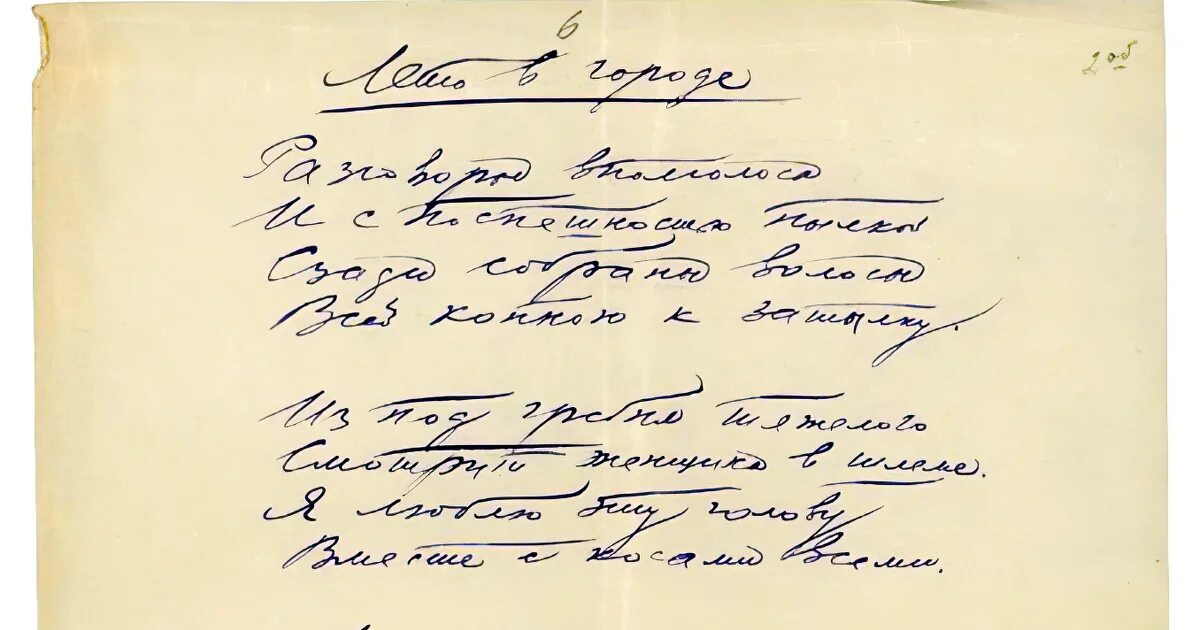 6
2об
Лето в городе
Разговоры вполголоса
И с поспешностью пылкой
Сзади собраны волосы
Всей копною к затылку.
Из под гребня тяжелого
Смотрит женщина в шлеме.
Я люблю эту голову
Вместе с косами всеми.